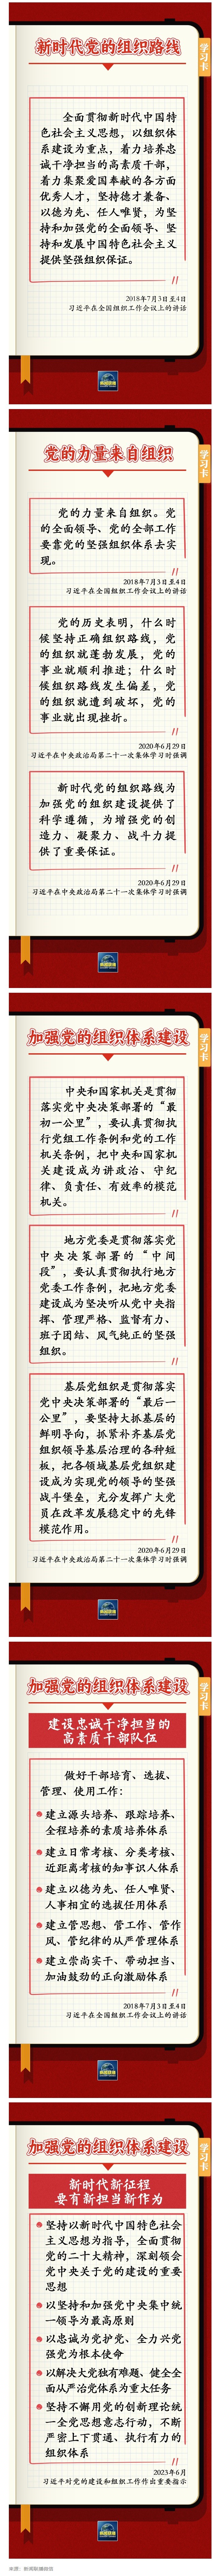 学习卡
新时代党的组织路线
全面贯彻新时代中国特
色社会主义思想，以组织体
系建设为重点，着力培养忠
诚干净担当的高素质干部，
着力集聚爱国奉献的各方面
优秀人才，坚持德才兼备、
以德为先、任人唯贤，为坚
持和加强党的全面领导、坚
持和发展中国特色社会主义
提供坚强组织保证。
2018年7月3日至4日
习近平在全国组织工作会议上的讲话
学习卡
党的力量来自组织
党的力量来自组织。党
的全面领导、党的全部工作
要靠党的坚强组织体系去实
现。
2018年7月3日至4日
习近平在全国组织工作会议上的讲话
党的历史表明，什么时
候坚持正确组织路线，党
的组织就蓬勃发展，党的
事业就顺利推进；什么时
候组织路线发生偏差，党
的组织就遭到破坏，党的
事业就出现挫折。
2020年6月29日
习近平在中央政治局第二十一次集体学习时强调
新时代党的组织路线为
加强党的组织建设提供了
科学遵循，为增强党的创
造力、凝聚力、战斗力提
供了重要保证。
2020年6月29日
习近平在中央政治局第二十一次集体学习时强调
学习卡
加强党的组织体系建设
中央和国家机关是贯彻
落实党中央决策部署的“最
初一公里”，要认真贯彻执
行党组工作条例和党的工作
机关条例，把中央和国家机
关建设成为讲政治、守纪
律、负责任、有效率的模范
机关。
地方党委是贯彻落实党
中央决策部署的“中间
段”，要认真贯彻执行地方
党委工作条例，把地方党委
建设成为坚决听从党中央指
挥、管理严格、监督有力、
班子团结、风气纯正的坚强
组织。
基层党组织是贯彻落实
党中央决策部署的“最后一
公里”，要坚持大抓基层的
鲜明导向，抓紧补齐基层党
组织领导基层治理的各种短
板，把各领域基层党组织建
设成为实现党的领导的坚强
战斗堡垒，充分发挥广大党
员在改革发展稳定中的先锋
模范作用。
2020年6月29日
习近平在中央政治局第二十一次集体学习时强调
学习卡
加强党的组织体系建设
建设忠诚干净担当的
高素质干部队伍
做好干部培育、选拔、
管理、使用工作：
建立源头培养、跟踪培养、
全程培养的素质培养体系
建立日常考核、分类考核、
近距离考核的知事识人体系
建立以德为先、任人唯贤、
人事相宜的选拔任用体系
建立管思想、管工作、管作
风、管纪律的从严管理体系
建立崇尚实干、带动担当、
加油鼓劲的正向激励体系
2018年7月3日至4日
习近平在全国组织工作会议上的讲话
学习卡
加强党的组织体系建设
新时代新征程
要有新担当新作为
坚持以新时代中国特色社会
主义思想为指导，全面贯彻
党的二十大精神，深刻领会
党中央关于党的建设的重要
思想
以坚持和加强党中央集中统
一领导为最高原则
以忠诚为党护党、全力兴党
强党为根本使命
以解决大党独有难题、健全全
面从严治党体系为重大任务
坚持不懈用党的创新理论统
一全党思想意志行动，不断
严密上下贯通、执行有力的
组织体系
2023年6月
习近平对党的建设和组织工作作出重要指示
来源：新闻联播微信